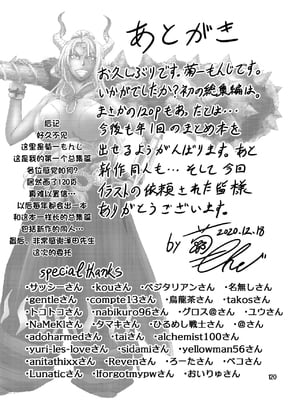 あとがき
お久しぶりです。菊一もんじです。
いかがでしたか?初の総集編は。
まさかの120Pもあったとは…
今後も年1回のまとめ本を
出せるようがんばります。あと
新作同人も… そして今回
イラストの依頼された皆様
ありがとうございます。
2020.12.18
by 菊一もんじ
后记
好久不见
这里是菊一もんじ
这是我的第一个总集篇
各位感觉如何?
居然画了120页
真难以置信…
以后每年都会出一本
和这本一样长的总集篇
包括新作的同人…
最后、非常感谢
这次的委托
special thanks
・サッシーさん ・kouさん ・ベジタリアンさん ・名無しさん
・gentleさん ・compte13さん ・烏龍茶さん ・takosさん
・トコトコさん ・nabikuro96さん ・グロス@さん ・ユウさん
・NaMeKIさん ・タマキさん ・ひるめし戦士さん ・@さん
・adoharmedさん ・taiさん ・alchemist100さん
・yuri-les-loveさん ・sidamiさん ・yellowman56さん
・anitathixxさん ・Revenさん ・ろーたさん ・ペコさん
・Lunaticさん ・Iforgotmypwさん ・おいりゅさん
120